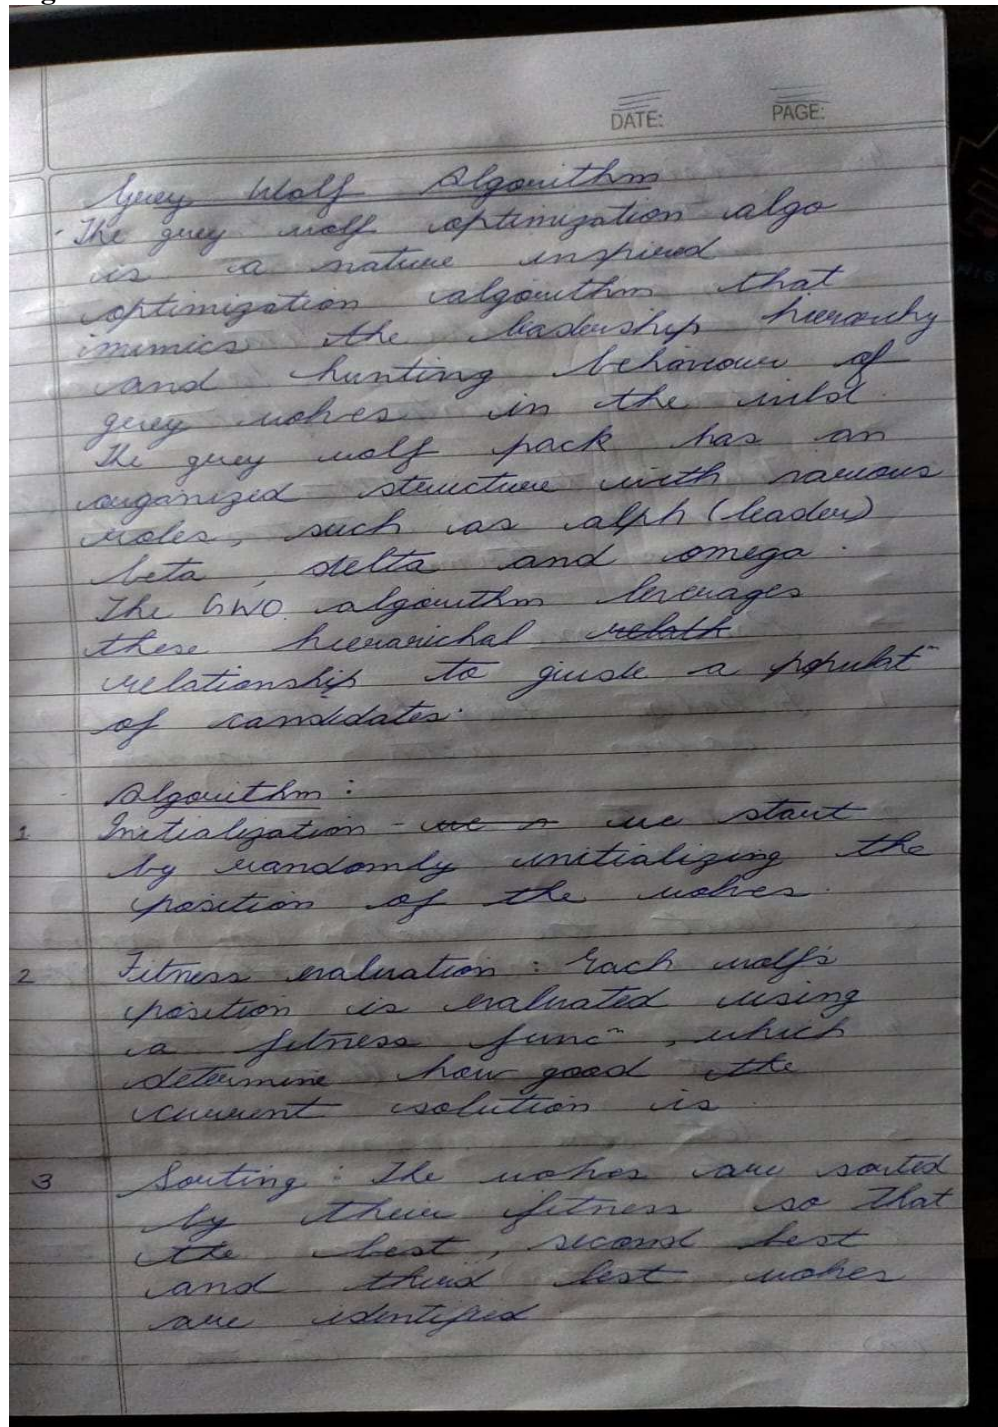 DATE: PAGE:
Grey Wolf Algorithm
The grey wolf optimization algo
is a nature inspired
optimization algorithm that
mimics the leadership hierarchy
and hunting behaviour of
grey wolves in the wild.
The grey wolf pack has an
organized structure with various
roles, such as alph (leader)
beta, delta and omega.
The GWO algorithm leverages
these hierarichal relath
relationship to giude a populatn
of candidates.
Algorithm :
1 Initialization - we s we start
by randomly initializing the
position of the wolves.
2 Fitness evaluation : Each wolf's
position is evaluated using
a fitness funcn, which
determine how good the
current solution is
3 Sorting : The wolves are sorted
by their fitness so that
the best, second best
and third best wolves
are identified